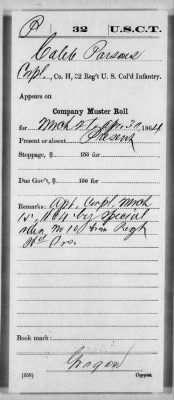 P 32 U.S.C.T.
Caleb Parsons
Corpl., Co. H, 32 Reg't U. S. Col'd Infantry.
Appears on
Company Muster Roll
for Mch 7 to Apr. 30, 1864
Present or absent Present
Stoppage, $ 100 for
Due Gov't, $ 100 for
Remarks: Apt. Corpl. Mrch
15, 1864 by Special
No 10 from Regtl
Hd Qrs.
Book mark:
Grogan
(358) Copyist.